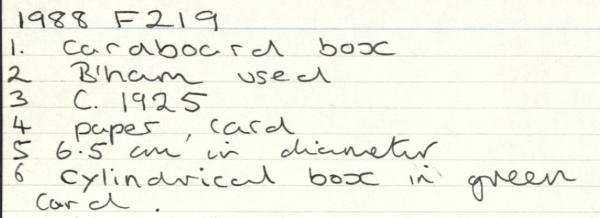 1988 F219
1. Cardboard box
2 B'ham used
3 C. 1925
4 paper, card
5 6.5 cm in diameter
6 Cylindrical box in green
card.